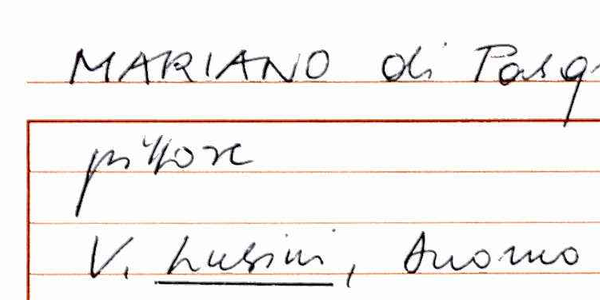 MARIANO di Pasq
pittore
V. Lusini, Duomo